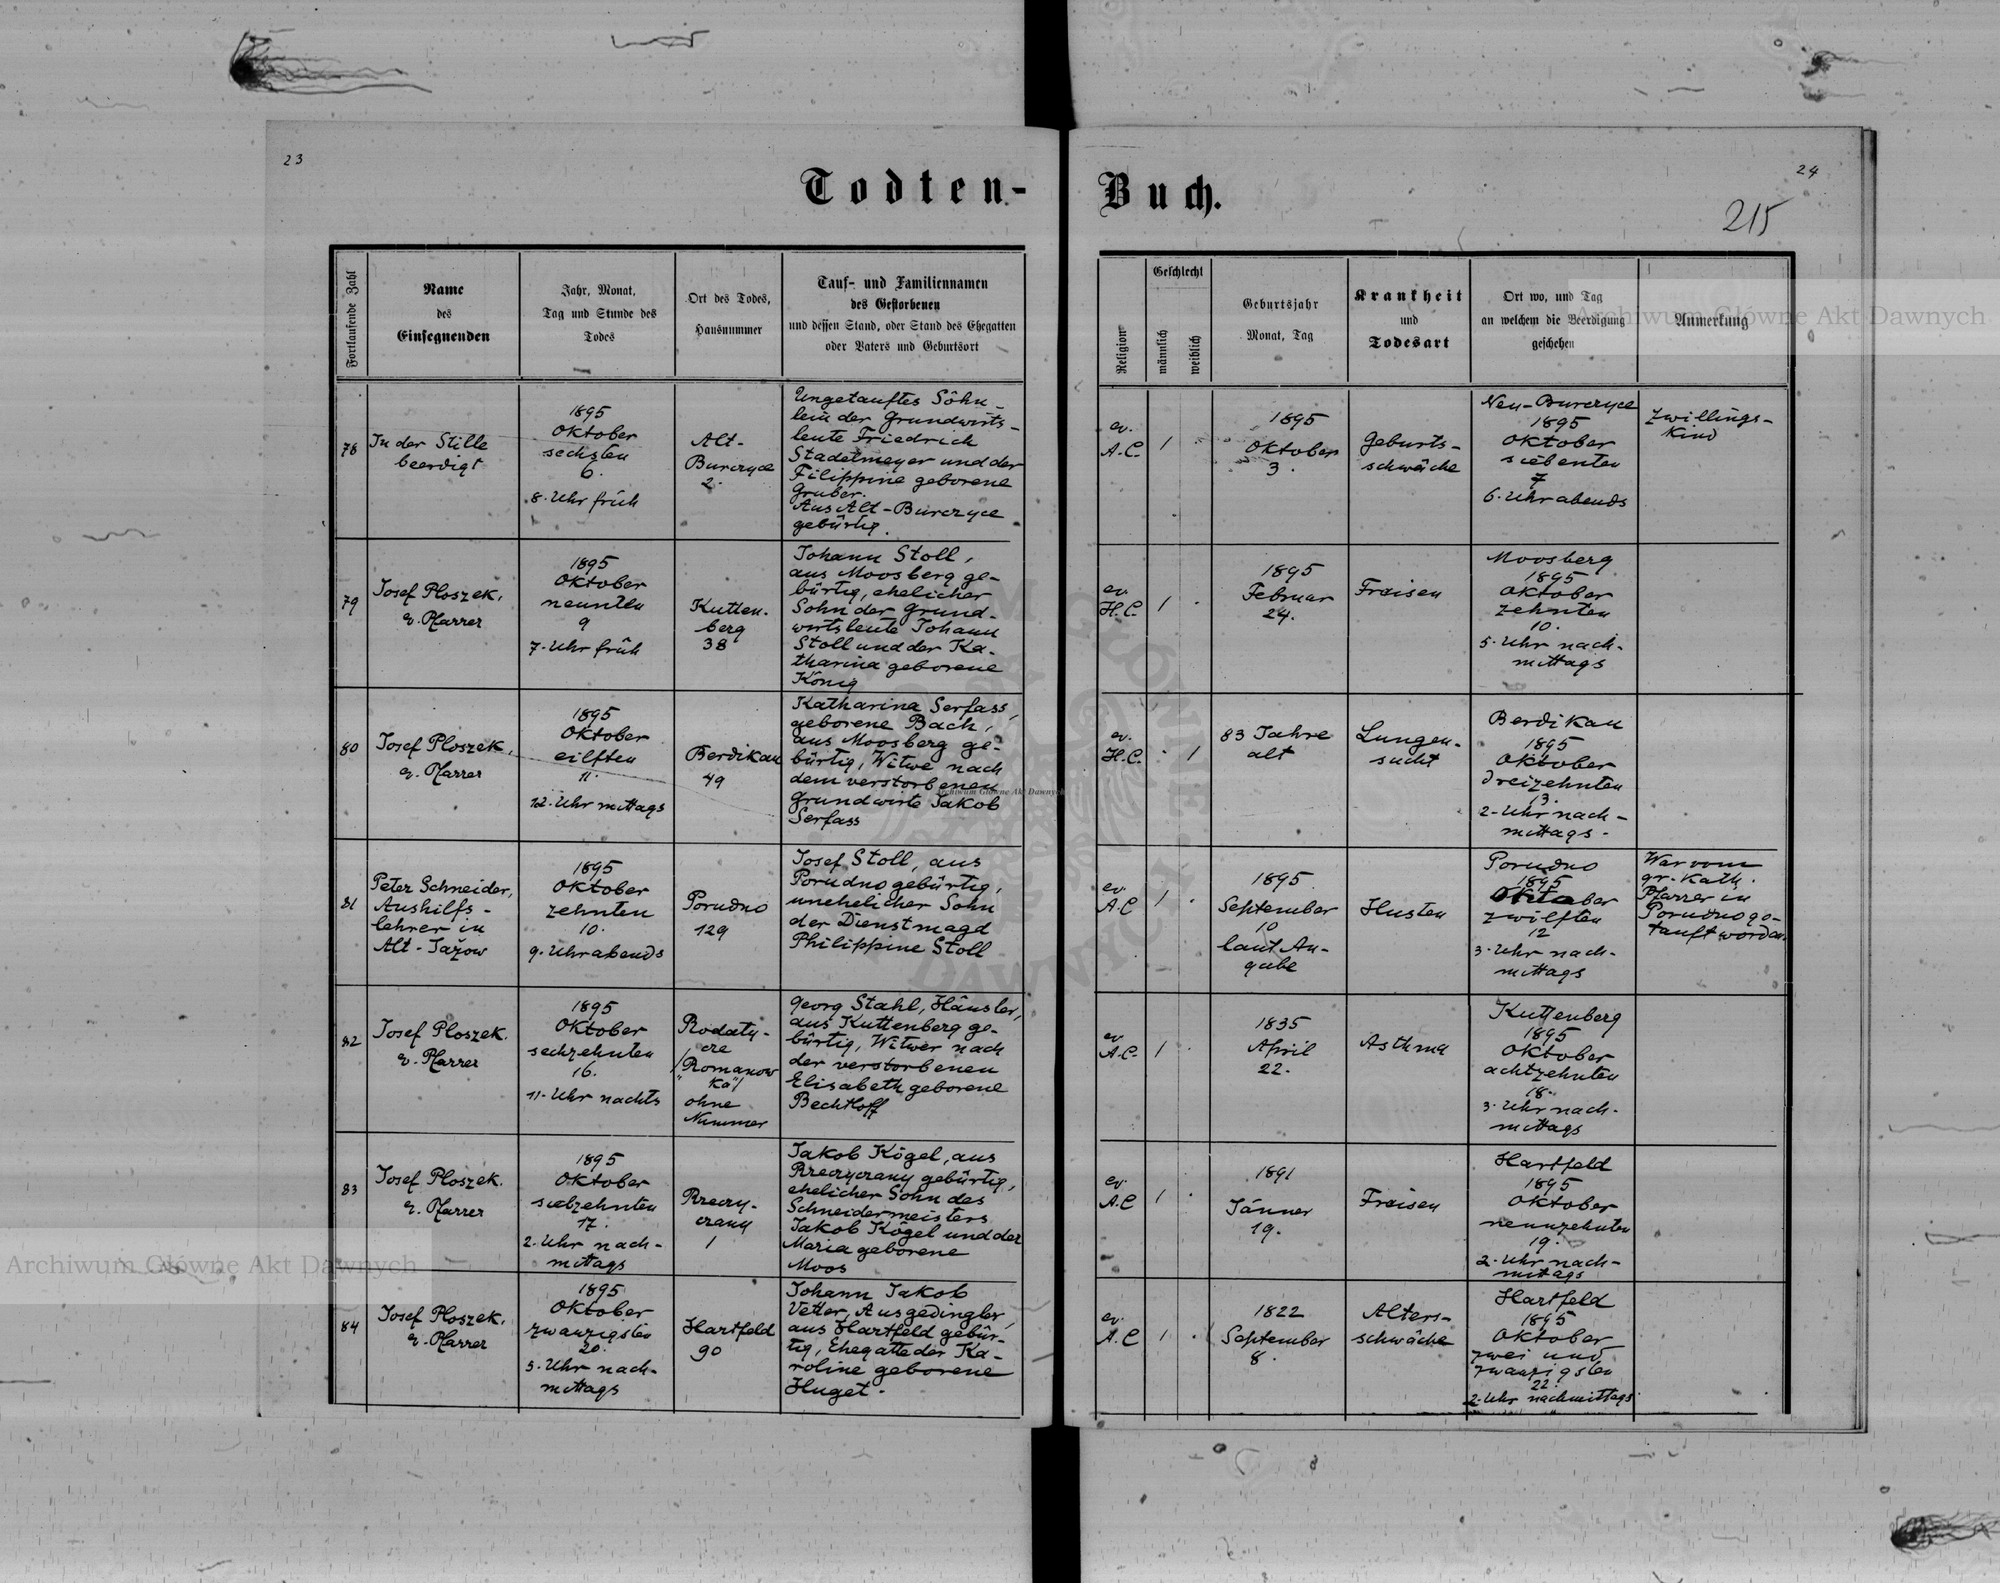 23
24
Todten-
Buch.
215
Fortlaufende Zahl
Name
des
Einsegnenden
Jahr, Monat,
Tag und Stunde des
Todes
Ort des Todes,
Hausnummer
Tauf- und Familiennamen
des Gestorbenen
und dessen Stand, oder Stand des Ehegatten
oder Vaters und Geburtsort
Religion
Geschlecht
männlich
weiblich
Geburtsjahr
Monat, Tag
Krankheit
und
Todesart
Ort wo, und Tag
an welchem die Beerdigung
geschehen
Anmerkung
78
In der Stille
beerdigt
1895
Oktober
sechsten
6.
8. Uhr früh
Alt-
Burczyce
2.
Ungetauftes Söhn-
lein der Grundwirts-
leute Friedrich
Stadelmeyer und der
Filippine geborene
Gruber.
Aus Alt-Burczyce
gebürtig.
ev.
A.C.
1
1895
Oktober
3.
Geburts-
schwäche
Neu-Burczyce
1895
Oktober
siebenten
7
6. Uhr abends
Zwillings-
kind
79
Josef Ploszek,
ev. Pfarrer
1895
Oktober
neunten
9
7. Uhr früh
Kutten-
berg
38
Johann Stoll,
aus Moosberg ge-
bürtig, ehelicher
Sohn der Grund-
wirtsleute Johann
Stoll und der Ka-
tharina geborene
König
ev.
H.C.
1
1895
Februar
24.
Fraisen
Moosberg
1895
Oktober
zehnten
10.
5. Uhr nach-
mittags
80
Josef Ploszek,
ev. Pfarrer
1895
Oktober
eilften
11.
12. Uhr mittags
Berdikau
49
Katharina Serfass,
geborene Bach,
aus Moosberg ge-
bürtig, Witwe nach
dem verstorbenen
Grundwirte Jakob
Serfass
ev.
H.C.
1
83 Jahre
alt
Lungen-
sucht
Berdikau
1895
Oktober
dreizehnten
13.
2. Uhr nach-
mittags.
81
Peter Schneider,
Aushilfs-
lehrer in
Alt-Jażow
1895
Oktober
zehnten
10.
9. Uhr abends
Porudno
129
Josef Stoll, aus
Porudno gebürtig,
unehelicher Sohn
der Dienstmagd
Philippine Stoll
ev.
A.C
1
1895
September
10
laut An-
gabe
Husten
Porudno
1895
Oktober
zwölften
12
3. Uhr nach-
mittags
War vom
gr. Kath.
Pfarrer in
Porudno ge-
tauft worden.
82
Josef Ploszek.
ev. Pfarrer
1895
Oktober
sechzehnten
16.
11. Uhr nachts
Rodaty-
cze
/"Romanow
ka"/
ohne
Nummer
Georg Stahl, Häusler,
aus Kuttenberg ge-
bürtig, Witwer nach
der verstorbenen
Elisabeth geborene
Bechtloff
ev
A.C.
1
1835
April
22.
Asthma
Kuttenberg
1895
Oktober
achtzehnten
18.
3. Uhr nach-
mittags
83
Josef Ploszek.
ev. Pfarrer
1895
Oktober
siebzehnten
17.
2. Uhr nach-
mittags
Rzeczy-
czany
1
Jakob Kögel, aus
Rzeczyczany gebürtig,
ehelicher Sohn des
Schneidermeisters
Jakob Kögel und der
Maria geborene
Moos
ev.
A.C
1
1891
Jänner
19.
Fraisen
Hartfeld
1895
Oktober
neunzehnten
19.
2. Uhr nach-
mittags
84
Josef Ploszek,
ev. Pfarrer
1895
Oktober
zwanzigsten
20.
5. Uhr nach-
mittags
Hartfeld
90
Johann Jakob
Vetter, Ausgedingler,
aus Hartfeld gebür-
tig, Ehegatte der Ka-
roline geborene
Huget.
ev.
A.C
1
1822
September
8.
Alters-
schwäche
Hartfeld
1895
Oktober
zwei und
zwanzigsten
22.
2. Uhr nachmittags
Archiwum Główne Akt Dawnych
Archiwum Główne Akt Dawnych
Archiwum Główne Akt Dawnych